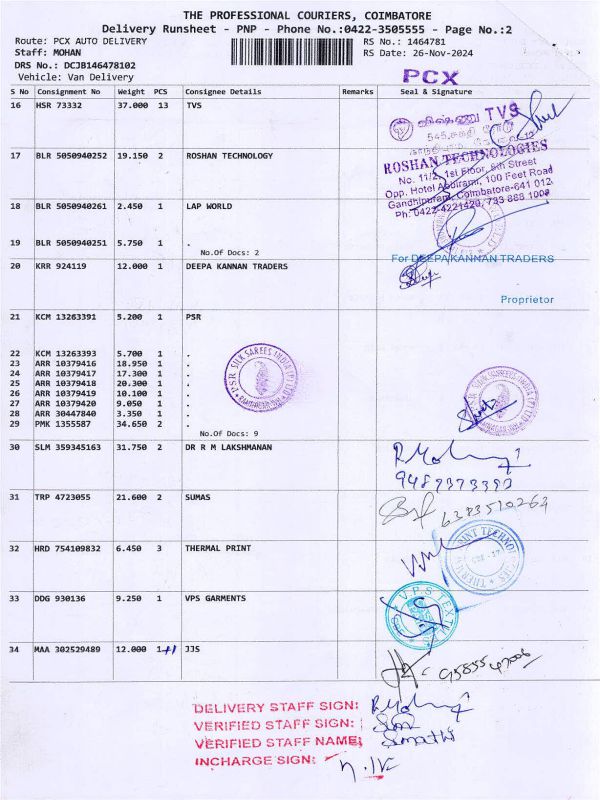 THE PROFESSIONAL COURIERS, COIMBATORE
Delivery Runsheet - PNP - Phone No.:0422-3505555 - Page No.:2
Route: PCX AUTO DELIVERY RS No.: 1464781
Staff: MOHAN RS Date: 26-Nov-2024
DRS No.: DCJB146478102
Vehicle: Van Delivery
PCX
S No Consignment No Weight PCS Consignee Details Remarks Seal & Signature
16 HSR 73332 37.000 13 TVS
விஷ்ணு TVS
17 BLR 5050940252 19.150 2 ROSHAN TECHNOLOGY
ROSHAN TECHNOLOGIES
No. 11/2, 1st Floor, 8th Street
Opp. Hotel Abbirami, 100 Feet Road
Gandhipuram, Coimbatore-641 012.
Ph: 0422-4221420, 733 888 1009
18 BLR 5050940261 2.450 1 LAP WORLD
19 BLR 5050940251 5.750 1 .
No.Of Docs: 2
20 KRR 924119 12.000 1 DEEPA KANNAN TRADERS
For DEEPA KANNAN TRADERS
Proprietor
21 KCM 13263391 5.200 1 PSR
22 KCM 13263393 5.700 1 .
23 ARR 10379416 18.950 1 .
24 ARR 10379417 17.300 1 .
25 ARR 10379418 20.300 1 .
26 ARR 10379419 10.100 1 .
27 ARR 10379420 9.050 1 .
28 ARR 30447840 3.350 1 .
29 PMK 1355587 34.650 2 .
No.Of Docs: 9
PSR SILK SAREES INDIA (P) LTD
30 SLM 359345163 31.750 2 DR R M LAKSHMANAN
31 TRP 4723055 21.600 2 SUMAS
6383510263
32 HRD 754109832 6.450 3 THERMAL PRINT
33 DDG 930136 9.250 1 VPS GARMENTS
V.P.S TEXTILES
34 MAA 302529489 12.000 1 JJS
DELIVERY STAFF SIGN:
VERIFIED STAFF SIGN:
VERIFIED STAFF NAME:
INCHARGE SIGN: